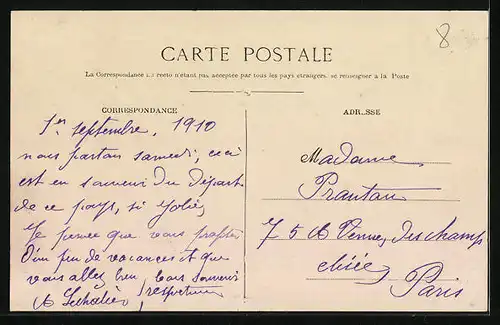 8
CARTE POSTALE
La Correspondance au recto n'étant pas acceptée par tous les pays étrangers, se renseigner à la Poste
CORRESPONDANCE
1er septembre, 1910
nous partons samedi, ceci
est en souvenir du départ
de ce pays, si jolie,
Je pense que vous
d'un peu de vacances et que
vous allez bien, bons souvenirs
respectueux
ADRESSE
Madame
Prantan
75 A Venue, des champ
elisée
Paris